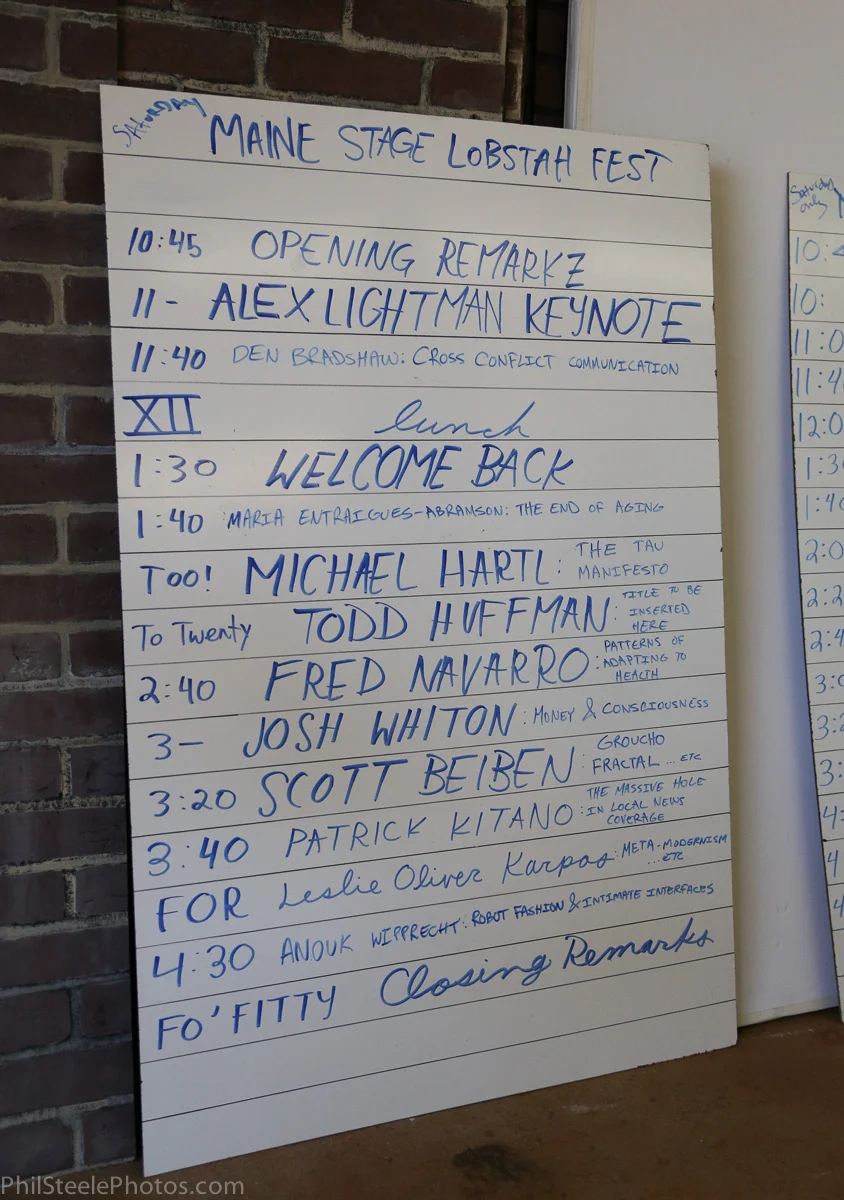 SATURDAY MAINE STAGE LOBSTAH FEST
10:45 OPENING REMARKZ
11- ALEX LIGHTMAN KEYNOTE
11:40 DEN BRADSHAW: CROSS CONFLICT COMMUNICATION
XII lunch
1:30 WELCOME BACK
1:40 MARIA ENTRAIGUES-ABRAMSON: THE END OF AGING
Too! MICHAEL HARTL: THE TAU
MANIFESTO
To Twenty TODD HUFFMAN: TITLE TO BE
INSERTED
HERE
2:40 FRED NAVARRO: PATTERNS OF
ADAPTING TO
HEALTH
3- JOSH WHITON: MONEY & CONSCIOUSNESS
3:20 SCOTT BEIBEN: GROUCHO
FRACTAL ... ETC
3:40 PATRICK KITANO: THE MASSIVE HOLE
IN LOCAL NEWS
COVERAGE
FOR Leslie Oliver Karpas: META-MODERNISM
...ETC
4:30 ANOUK WIPPRECHT: ROBOT FASHION & INTIMATE INTERFACES
FO'FITTY Closing Remarks
Saturday
only
10:
11:0
11:4
12:0
1:3
1:4
2:0
2:2
2:4
3:0
3:2
3:
4:
4
4
PhilSteelePhotos.com